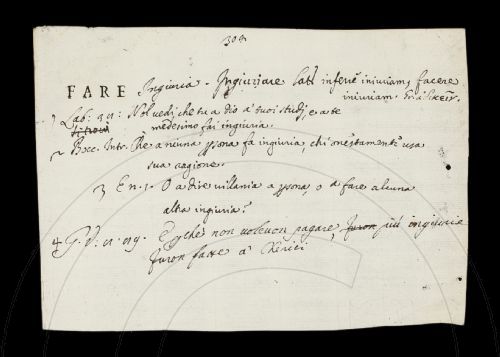 309.
FARE Ingiuria. Ingiuriare Lat. inferre iniuriam, facere
iniuriam. ἀδικεῖν.
1 Lab: 39: Nol uedj, che tu a Dio a' tuoi studj, e a te
medesimo fai ingiuria.
2 Bocc. Intr. Che a niuna psona fà ingiuria, chi onestamente usa
sua ragione.
3 En. 1. O a dire uillania a psona, o a fare alcuna
altra ingiuria?
4 G. V. Epchè non uoleuon pagare, furon più ingiurie
furon fatte a' Cherici